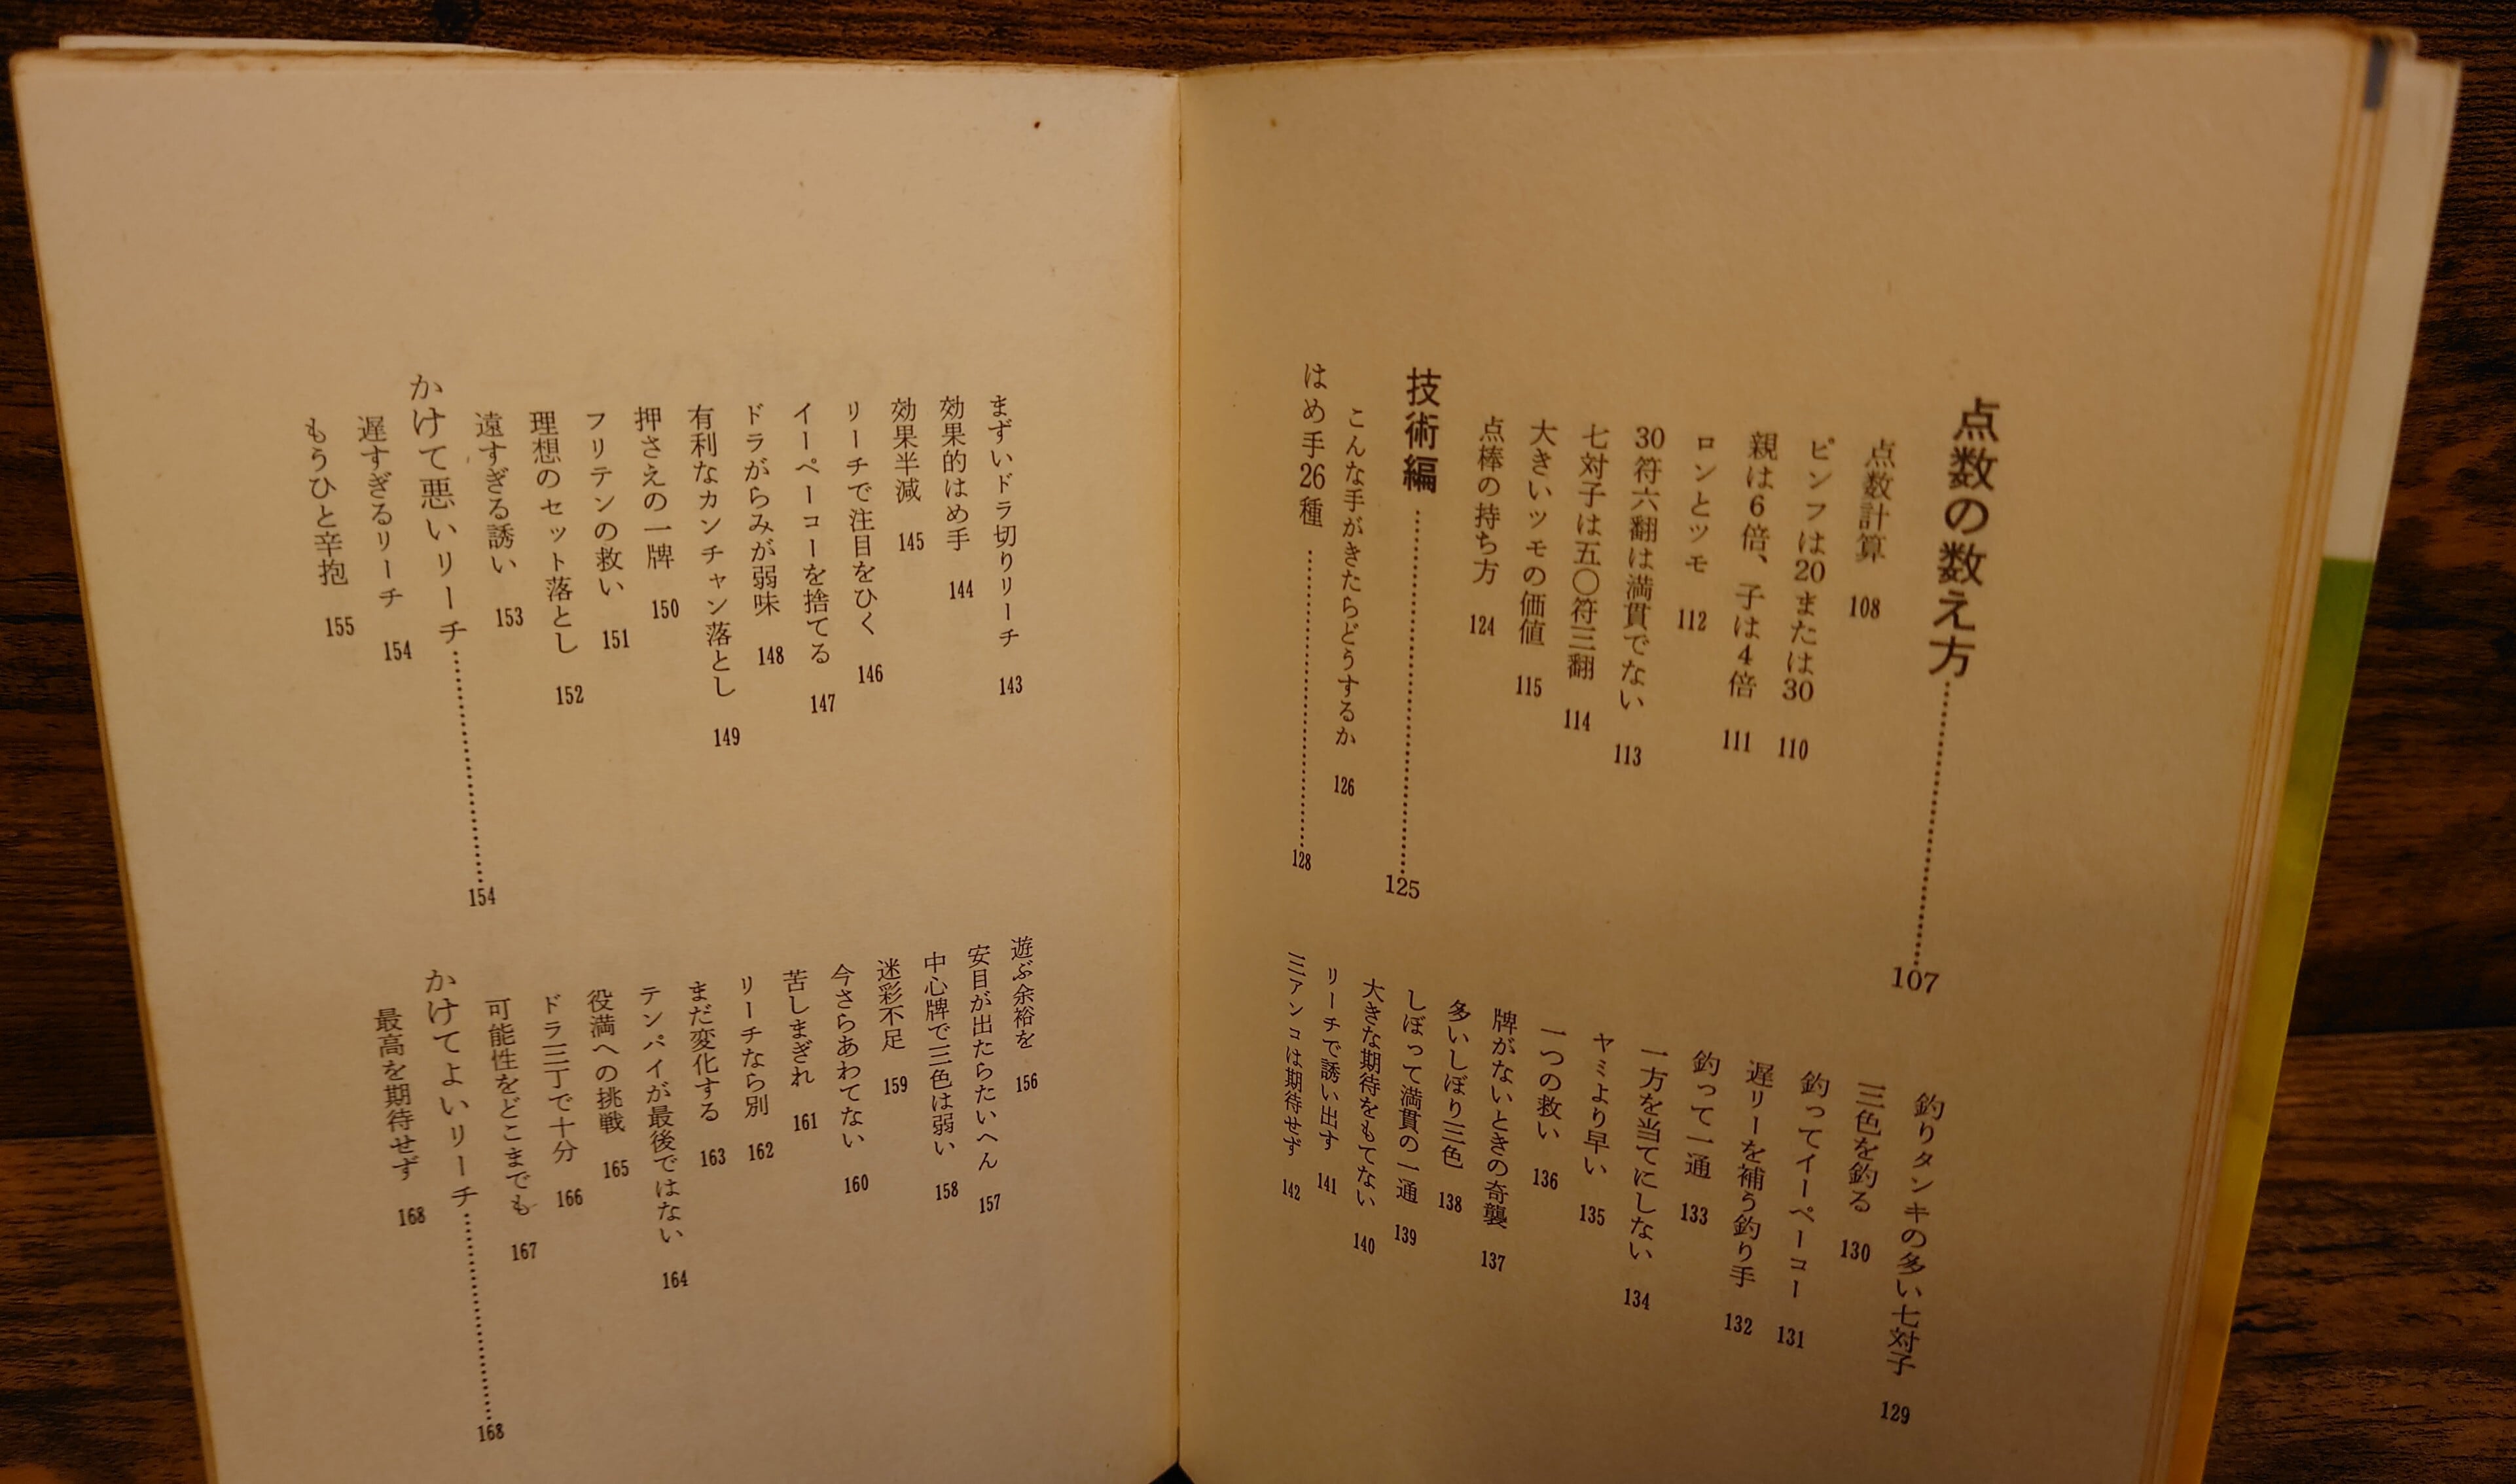 点数の数え方……………107
点数計算 108
ピンフは20または30 110
親は6倍、子は4倍 111
ロンとツモ 112
30符六翻は満貫でない 113
七対子は五〇符三翻 114
大きいツモの価値 115
点棒の持ち方 124
技術編……………125
こんな手がきたらどうするか 126
はめ手26種……………128
釣りタンキの多い七対子 129
三色を釣る 130
釣ってイーペーコー 131
遅リーを補う釣り手 132
釣って一通 133
一方を当てにしない 134
ヤミより早い 135
一つの救い 136
牌がないときの奇襲 137
多いしぼり三色 138
しぼって満貫の一通 139
大きな期待をもてない 140
リーチで誘い出す 141
三アンコは期待せず 142
まずいドラ切りリーチ 143
効果的はめ手 144
効果半減 145
リーチで注目をひく 146
イーペーコーを捨てる 147
ドラがらみが弱味 148
有利なカンチャン落とし 149
押さえの一牌 150
フリテンの救い 151
理想のセット落とし 152
遠すぎる誘い 153
かけて悪いリーチ……………154
遅すぎるリーチ 154
もうひと辛抱 155
遊ぶ余裕を 156
安目が出たらたいへん 157
中心牌で三色は弱い 158
迷彩不足 159
今さらあわてない 160
苦しまぎれ 161
リーチなら別 162
まだ変化する 163
テンパイが最後ではない 164
役満への挑戦 165
ドラ三丁で十分 166
可能性をどこまでも 167
かけてよいリーチ……………168
最高を期待せず 168